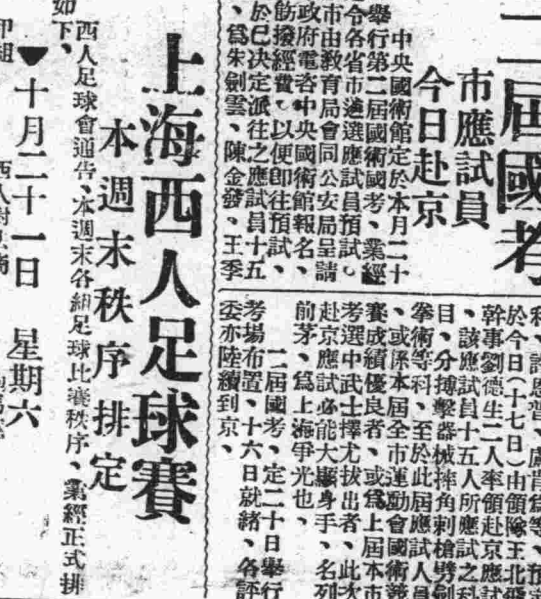 二屆國考
市應試員
今日赴京
中央國術館定於本月二十
舉行第二屆國術國考、業經
令各省市遴選應試員預試。
市由教育局會同公安局呈請
政府電咨中央國術館報名、
飭撥經費。以便即往預試、
於已決定派往之應試員十五
、爲朱劍雲、陳金發、王季
於今日(十七日)由領隊王北飛
幹事劉德生二人率領赴京應試
、該應試員十五人所應試之科
目、分搏擊器械摔角剌槍劈劍
拳術等科、至於此屆應試人員
、或係本屆全市運動會國術競
賽成績優良者、或爲上屆本市
考選中武士擇尤拔出者、此次
赴京應試必能大顯身手、名列
前茅、爲上海爭光也、
二屆國考、定二十日舉行
考場布置、十六日就緒、各評
委亦陸續到京、
上海西人足球賽
本週末秩序排定
西人足球會通告、本週末各組足球比賽秩序、業經正式排
如下、
▼十月二十一日 星期六
甲組